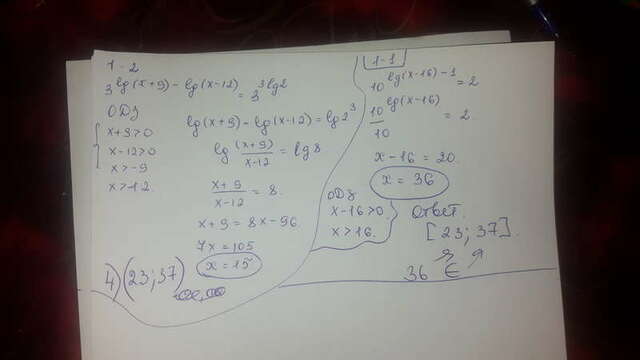 1-2
3^{lg(x+9)-lg(x-12)} = 3^{3lg2}
ОДЗ
x+9>0
x-12>0
x>-9
x>12.
lg(x+9)-lg(x-12)=lg2^3
lg (x+9)/(x-12) = lg8
(x+9)/(x-12) = 8.
x+9=8x-96.
7x=105
x=15
4) (23;37)
1-1
10^{lg(x-16)-1} = 2
10^{lg(x-16)}/10 = 2.
x-16=20.
x=36
ОДЗ
x-16>0
x>16.
Ответ.
[23; 37].
36 ∈